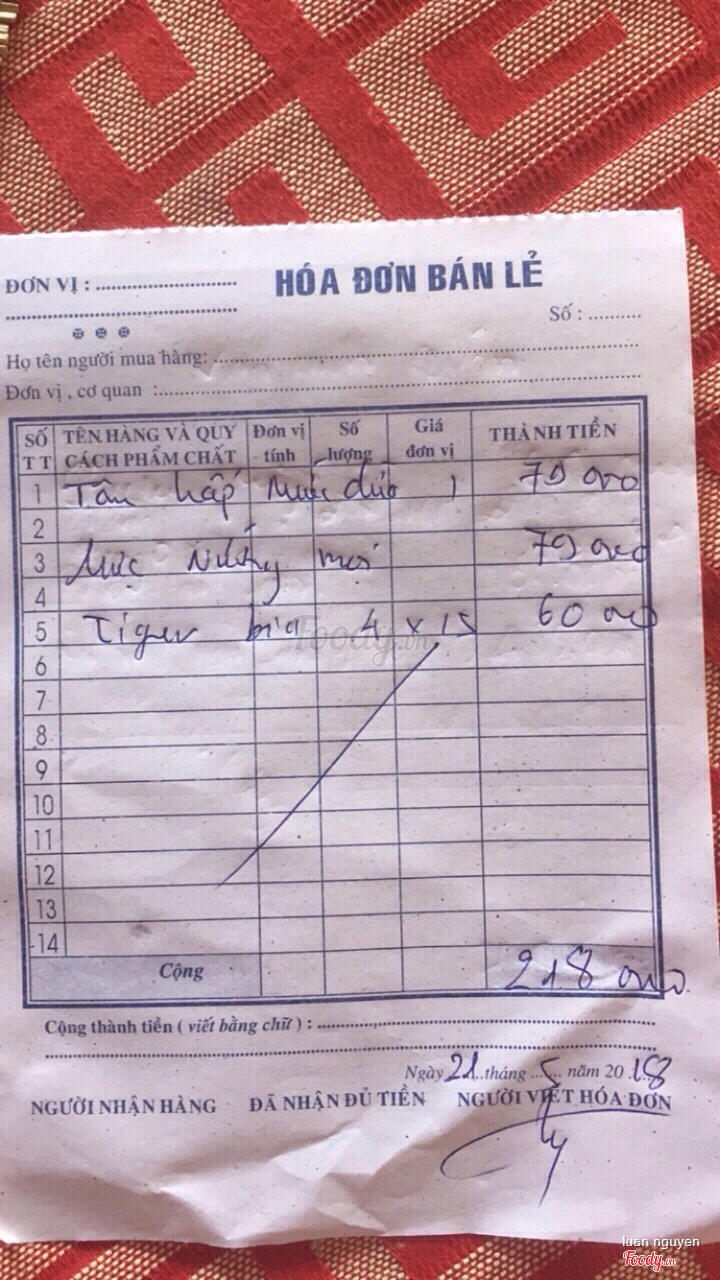 ĐƠN VỊ : ..............................
HÓA ĐƠN BÁN LẺ
Số : ..........
Họ tên người mua hàng: ..............................
Đơn vị , cơ quan :..............................
SỐ TT TÊN HÀNG VÀ QUY CÁCH PHẨM CHẤT Đơn vị tính Số lượng Giá đơn vị THÀNH TIỀN
1 Tôm hấp Nước dừa 1 79 000
2
3 Mực Nướng mọi 79 000
4
5 Tiger bia 4 x 15 60 000
6
7
8
9
10
11
12
13
14
Cộng 218 000
Cộng thành tiền ( viết bằng chữ ) : ..............................
Ngày 21 tháng 5 năm 2018
NGƯỜI NHẬN HÀNG ĐÃ NHẬN ĐỦ TIỀN NGƯỜI VIẾT HÓA ĐƠN
Foody.vn
luan nguyen
Foody.vn